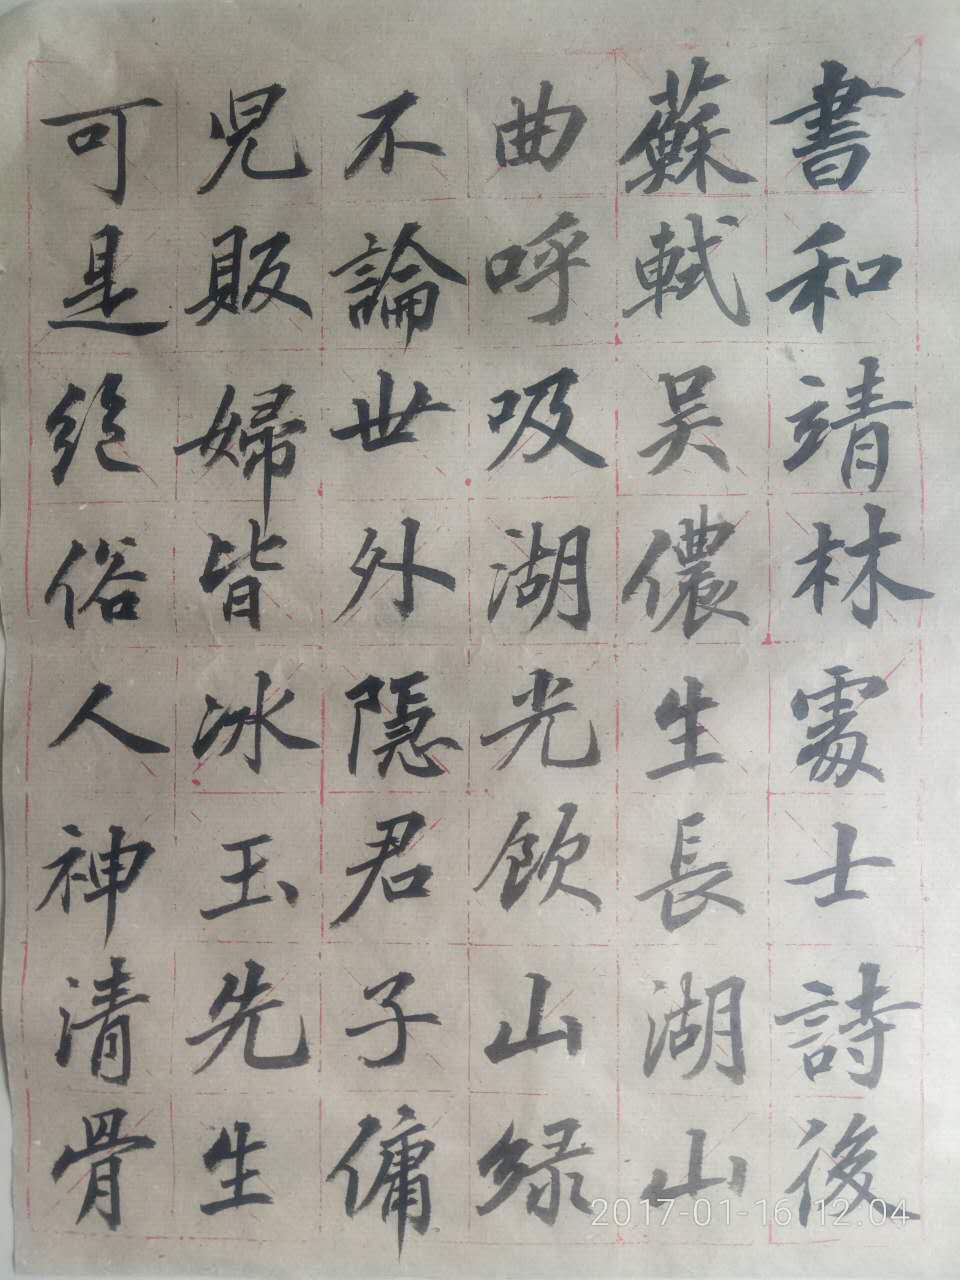 書和靖林處士詩後
蘇軾吴儂生長湖山
曲呼吸湖光飲山綠
不論世外隱君子傭
兒販婦皆冰玉先生
可是絕俗人神清骨
2017-01-16 12:04